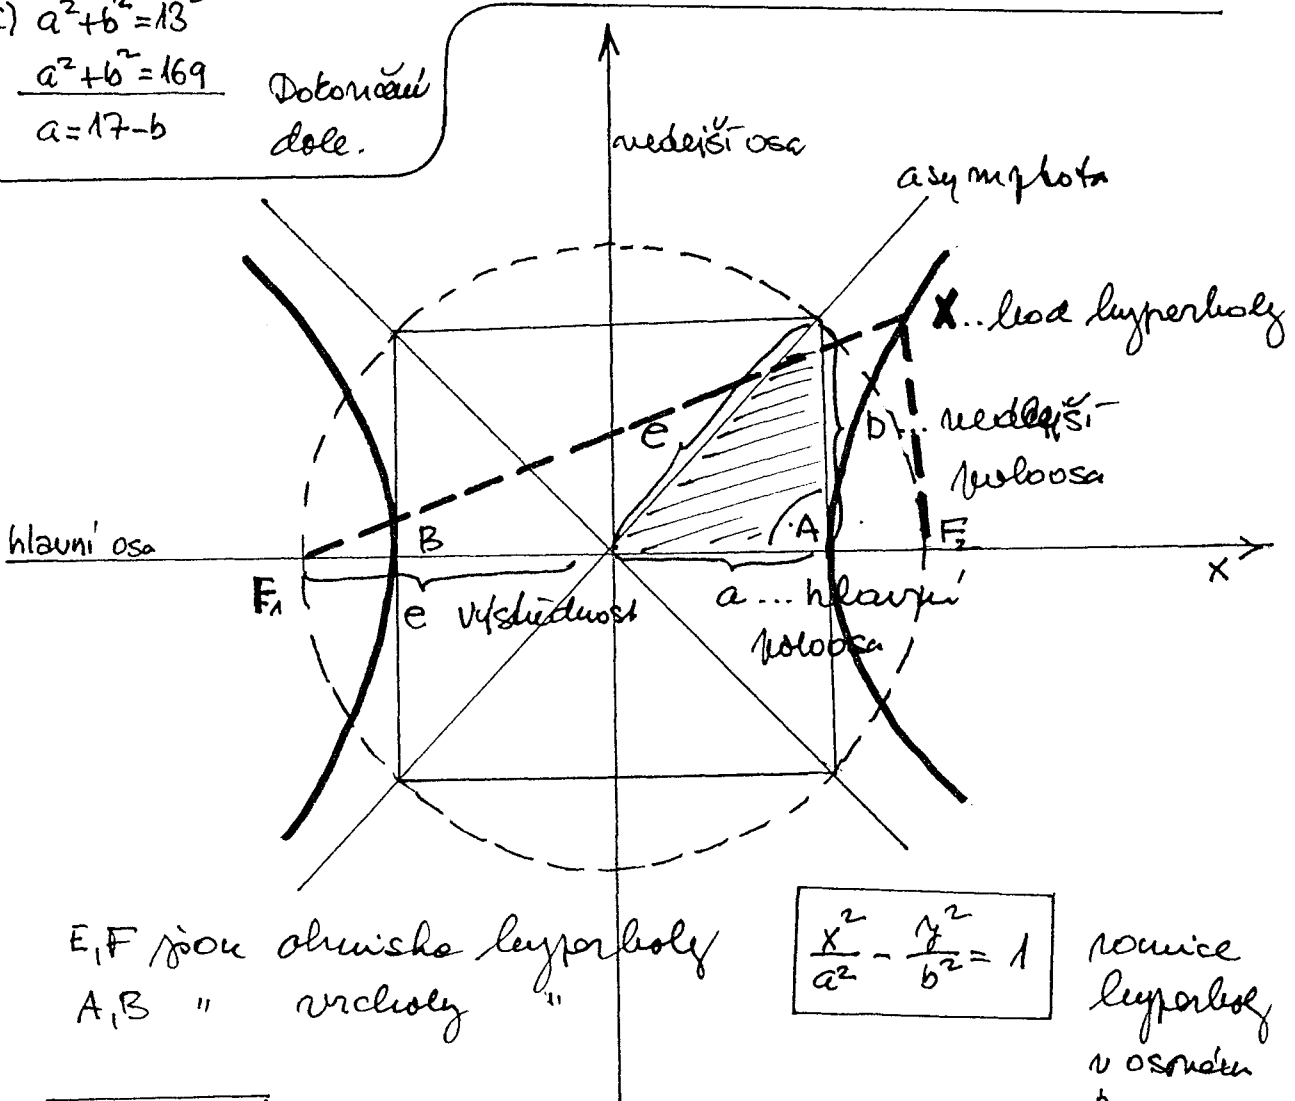 c) a²+b²=13²
a²+b²=169
a=17-b
Dokončení
dole.
vedlejší osa
asymptota
X..bod hyperboly
e
b... vedlejší
poloosa
hlavní osa
B
A
F₂
x
F₁
e výstřednost
a... hlavní
poloosa
E,F jsou ohniska hyperboly
A,B " vrcholy "
x²/a² - y²/b² = 1
rovnice
hyperboly
v osovém